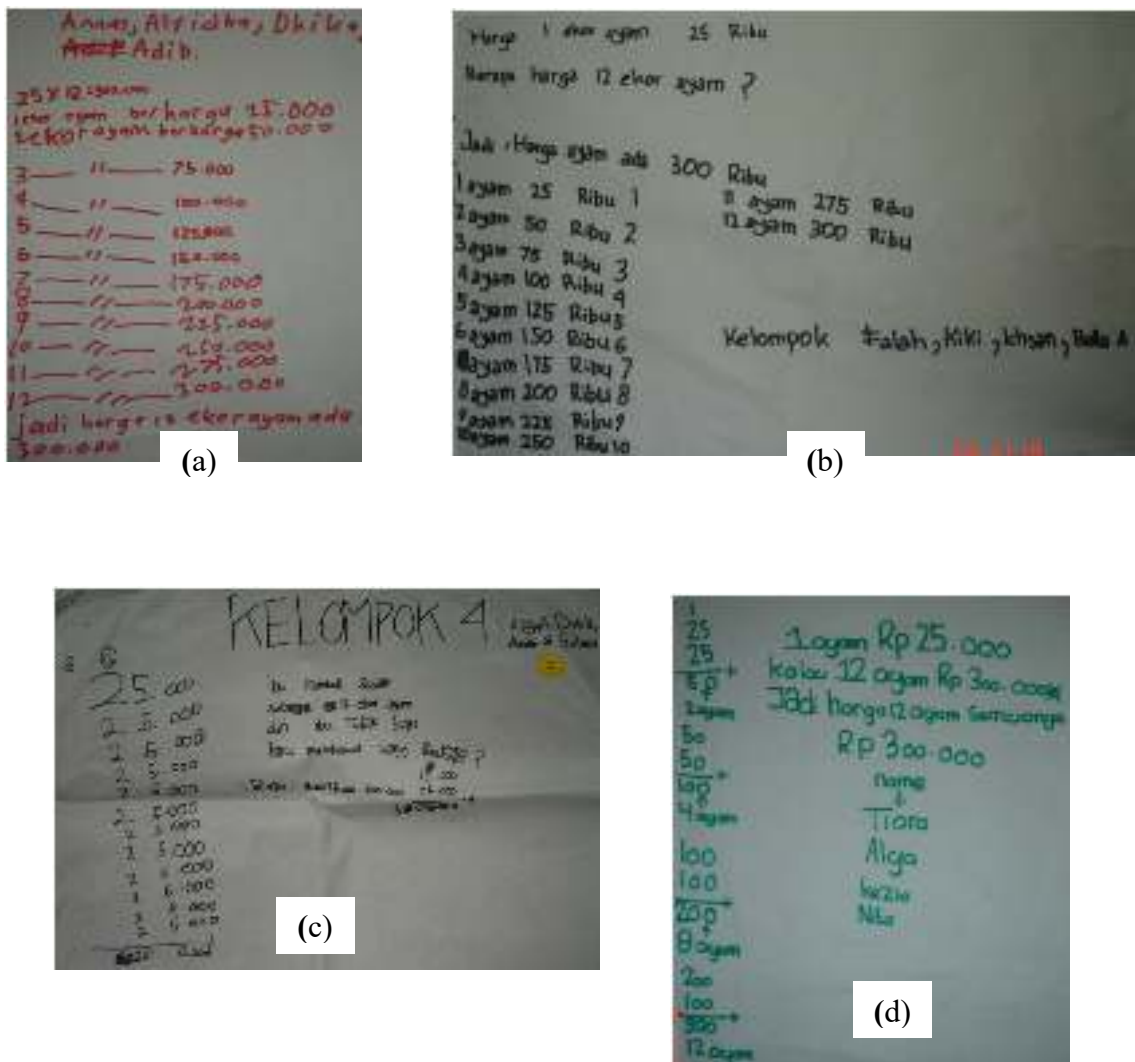 Annas, Alfidha, Dhika,
Adib.
25 x 12 ayam
1 ekor ayam berharga 25.000
2 ekor ayam berharga 50.000
3 — " — 75.000
4 — " — 100.000
5 — " — 125.000
6 — " — 150.000
7 — " — 175.000
8 — " — 200.000
9 — " — 225.000
10 — " — 250.000
11 — " — 275.000
12 — " — 300.000
jadi harga 12 ekor ayam ada
300.000
(a)
Harga 1 ekor ayam 25 Ribu
Berapa harga 12 ekor ayam ?
Jadi, Harga ayam ada 300 Ribu
1 ayam 25 Ribu 1
2 ayam 50 Ribu 2
3 ayam 75 Ribu 3
4 ayam 100 Ribu 4
5 ayam 125 Ribu 5
6 ayam 150 Ribu 6
ayam 175 Ribu 7
8 ayam 200 Ribu 8
9 ayam 225 Ribu 9
10 ayam 250 Ribu 10
11 ayam 275 Ribu
12 ayam 300 Ribu
Kelompok Falah, Kiki, Ichsan,
(b)
KELOMPOK 4
25.000
25.000
25.000
25.000
25.000
25.000
25.000
25.000
25.000
25.000
25.000
25.000
(c)
1
25
25
50
2 ayam
50
50
100
4 ayam
100
100
200
8 ayam
200
100
300
12 ayam
1 ayam Rp 25.000
kalau 12 ayam Rp 300.000
Jadi harga 12 ayam semuanya
Rp 300.000
name
Tiara
Alya
kezia
Nita
(d)